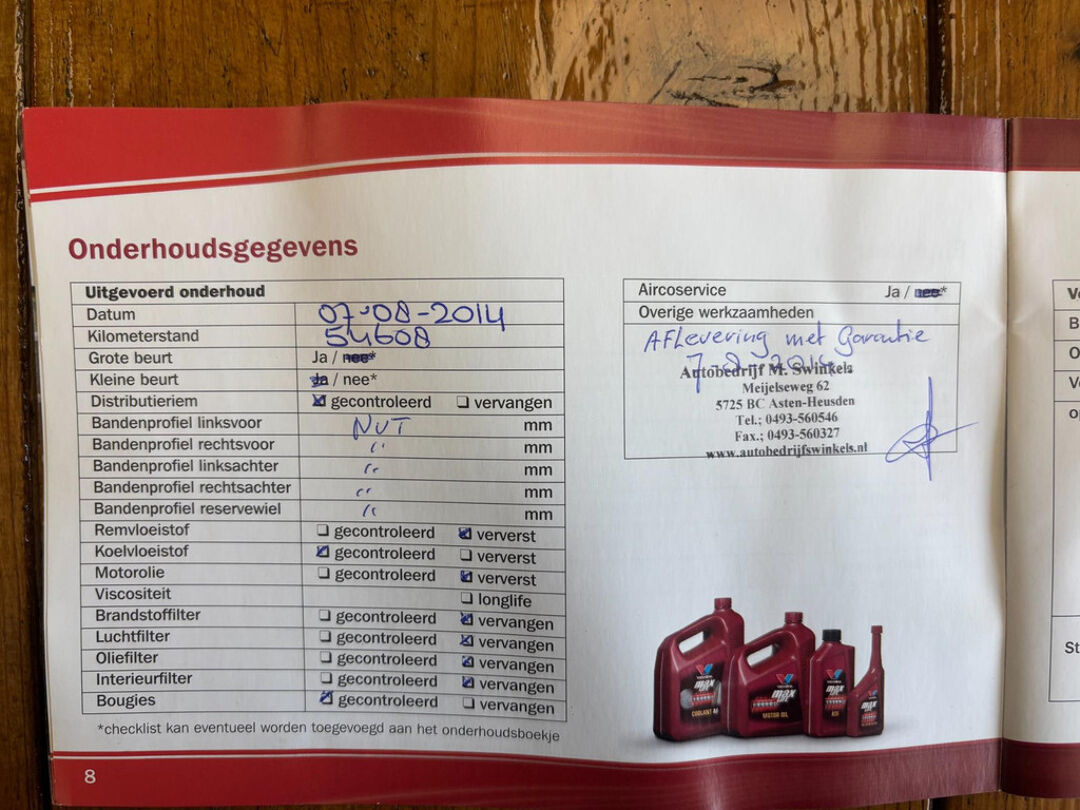 Onderhoudsgegevens
Uitgevoerd onderhoud
Datum 07-08-2014
Kilometerstand 54608
Grote beurt Ja / nee*
Kleine beurt Ja / nee*
Distributieriem gecontroleerd vervangen
Bandenprofiel linksvoor NUT mm
Bandenprofiel rechtsvoor " mm
Bandenprofiel linksachter " mm
Bandenprofiel rechtsachter " mm
Bandenprofiel reservewiel " mm
Remvloeistof gecontroleerd ververst
Koelvloeistof gecontroleerd ververst
Motorolie gecontroleerd ververst
Viscositeit longlife
Brandstoffilter gecontroleerd vervangen
Luchtfilter gecontroleerd vervangen
Oliefilter gecontroleerd vervangen
Interieurfilter gecontroleerd vervangen
Bougies gecontroleerd vervangen
*checklist kan eventueel worden toegevoegd aan het onderhoudsboekje
8
Aircoservice Ja / nee*
Overige werkzaamheden
Aflevering met Garantie
7-8-2014
Autobedrijf M. Swinkels
Meijelseweg 62
5725 BC Asten-Heusden
Tel.; 0493-560546
Fax.; 0493-560327
www.autobedrijfswinkels.nl
MAX
COOLANT
MAX
MOTOR OIL
MAX
MAX
Ve
B
O
V
St